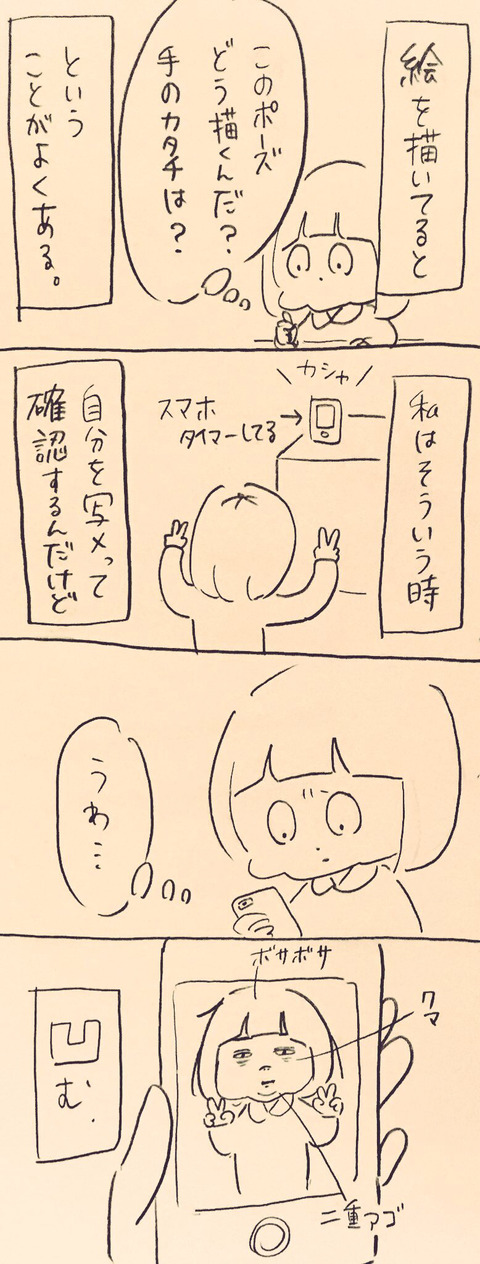 絵を描いてると
このポーズ
どう描くんだ?
手のカタチは?
という
ことがよくある。
私はそういう時
\カシャ/
スマホ→
タイマーしてる
自分を写メって
確認するんだけど
うわ…
ボサボサ
クマ
二重アゴ
凹む.